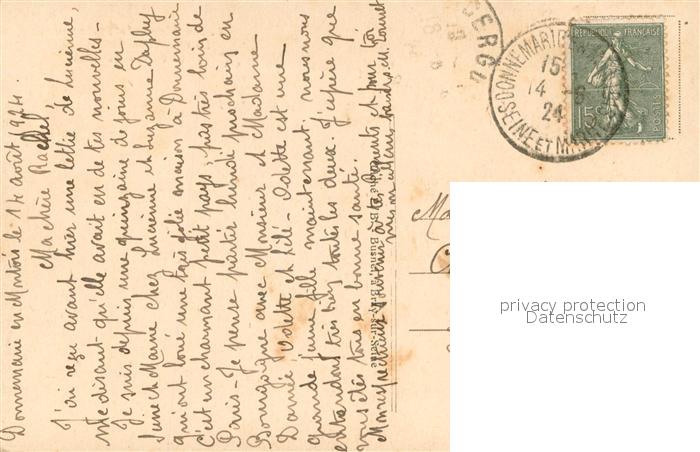 Donnemarie en Montois le 14 août 1924
Ma chère Rachel
J'ai reçu avant hier une lettre de Lucienne,
me disant qu'elle avait eu de tes nouvelles.
Je suis depuis une quinzaine de jours en
Seine et Marne chez Lucienne et Suzanne
qui ont loué une très jolie maison à Donnemarie
C'est un charmant petit pays, pas très loin de
Paris - Je pense partir lundi prochain en
Bourgogne avec Monsieur et Madame
Odette et Lili - Odette est une
grande jeune fille maintenant, nous nous
entendons très bien toutes les deux. J'espère que
vous êtes tous en bonne santé.
Mon respectueux souvenir à tes parents et pour toi
mes meilleurs baisers. M.
DONNEMARIE
SEINE ET MARNE
15
14 - 8
24
REPUBLIQUE FRANÇAISE
15c
POSTES
CERGY
Ma
privacy protection
Datenschutz